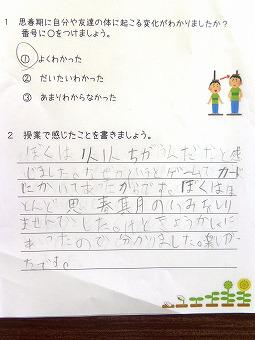 1 思春期に自分や友達の体に起こる変化がわかりましたか?
番号に○をつけましょう。
① よくわかった
② だいたいわかった
③ あまりわからなかった
2 授業で感じたことを書きましょう。
ぼくは 人人ちがうんだなと感
じました。なぜかというとゲームで カード
にかいてあったからです。ぼくはほ
とんど 思春期のいみをしり
ませんでした。けどきょうかしょに
あったので分かりました。楽しか
たです。